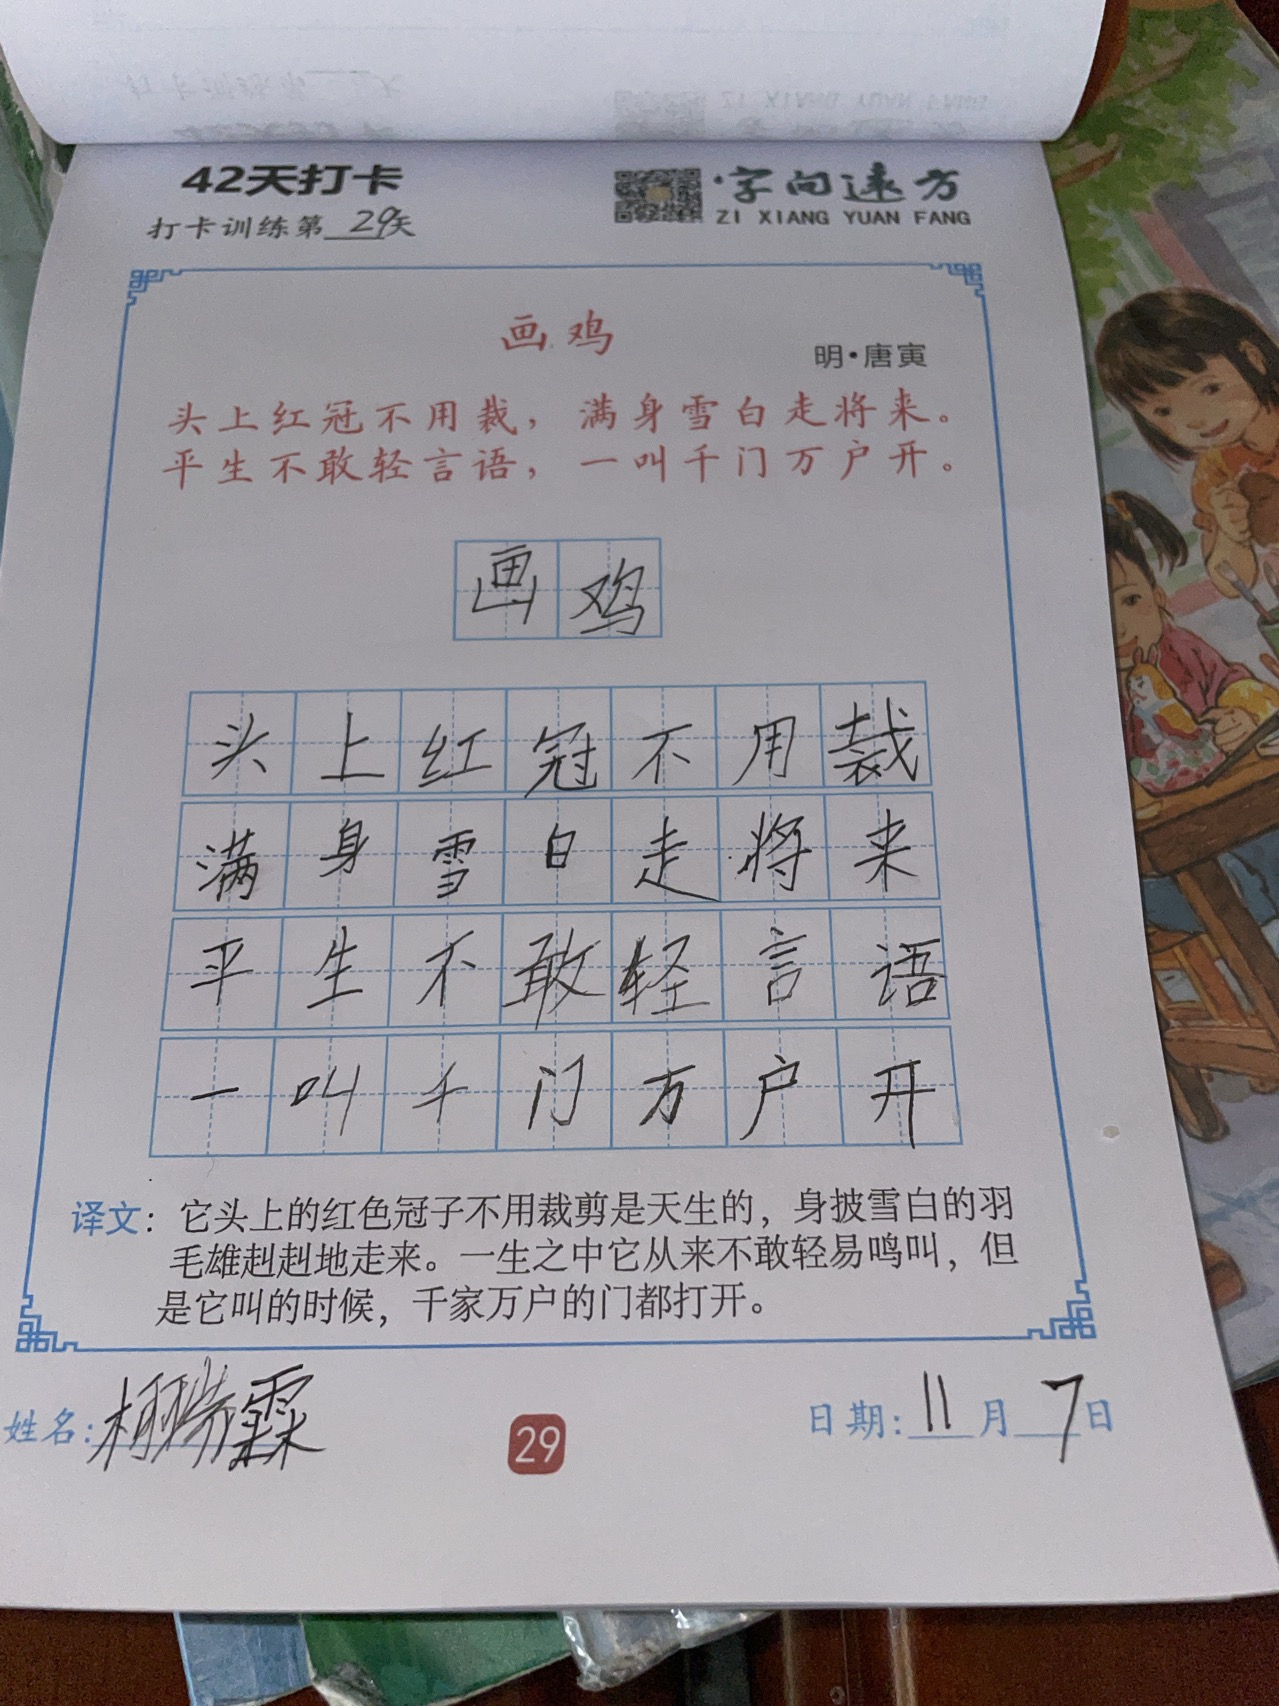 42天打卡
字向远方
ZI XIANG YUAN FANG
打卡训练第29天
画鸡
明·唐寅
头上红冠不用裁，满身雪白走将来。
平生不敢轻言语，一叫千门万户开。
画鸡
头上红冠不用裁
满身雪白走将来
平生不敢轻言语
一叫千门万户开
译文：它头上的红色冠子不用裁剪是天生的，身披雪白的羽
毛雄赳赳地走来。一生之中它从来不敢轻易鸣叫，但
是它叫的时候，千家万户的门都打开。
姓名：
29
日期：11月7日